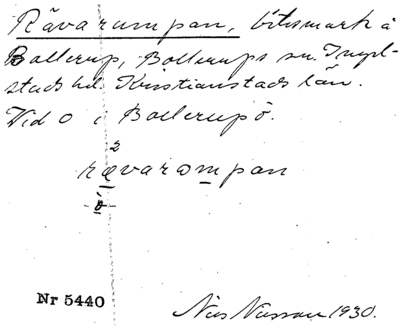 Rävarumpan, bitismark å
Bollerup, Bollerups sn. Ingel-
stads hd. Kristianstads län.
Vid O i Bollerup ö.
2
rævarampan
ò
Nr 5440
Nils Nilsson 1930.